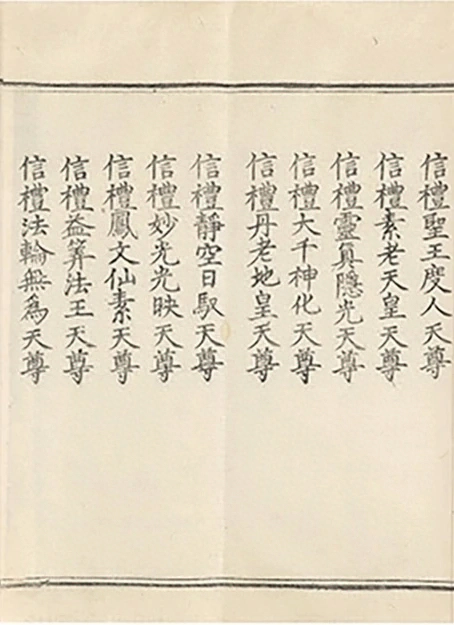 信禮聖王度人天尊
信禮素老天皇天尊
信禮靈真隱光天尊
信禮大千神化天尊
信禮丹老地皇天尊
信禮靜空日馭天尊
信禮妙光光映天尊
信禮鳳文仙素天尊
信禮益筭法王天尊
信禮法輪無為天尊